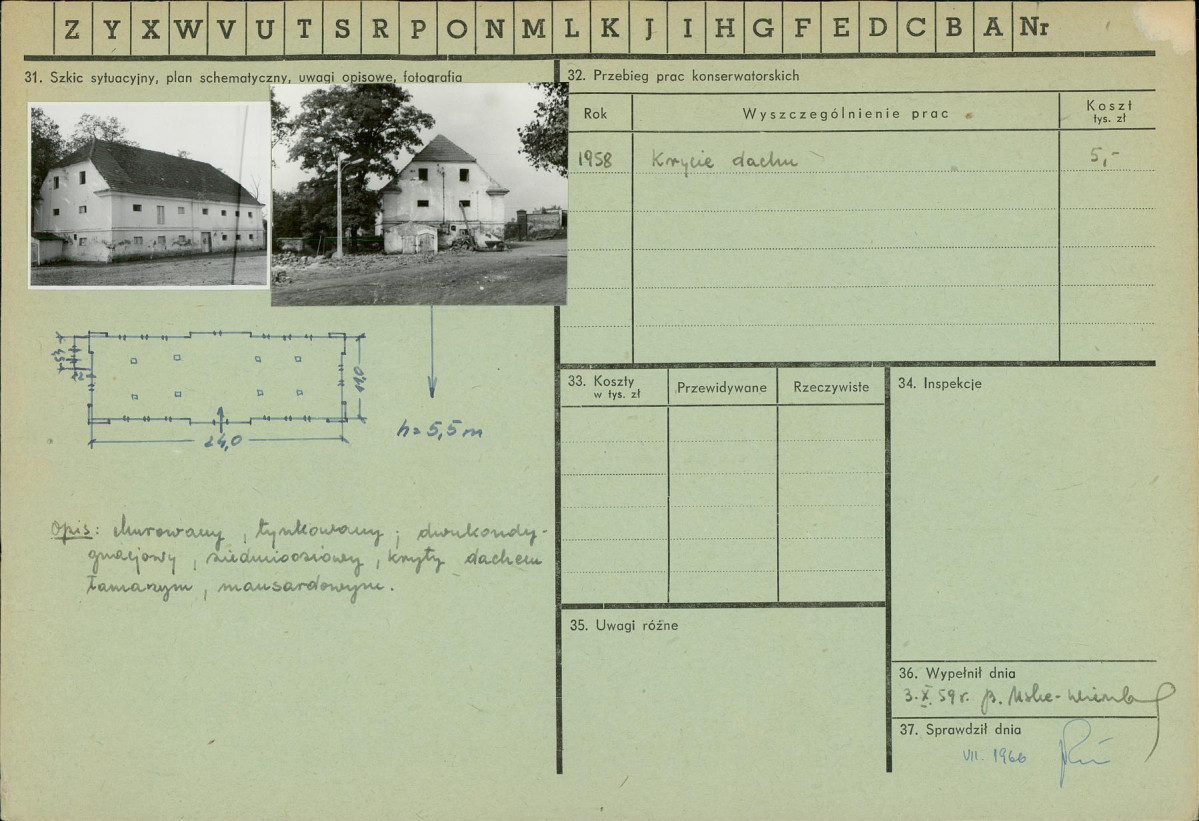 Z Y X W V U T S R P O N M L K J I H G F E D C B A Nr
31. Szkic sytuacyjny, plan schematyczny, uwagi opisowe, fotografia
24,0
11,0
h=5,5 m
Opis: Murowany, tynkowany; dwukondy-
gnacjowy, siedmioosiowy, kryty dachem
łamanym, mansardowym.
32. Przebieg prac konserwatorskich
Rok Wyszczególnienie prac Koszt
tys. zł
1958 Krycie dachu 5,-
33. Koszty Przewidywane Rzeczywiste
w tys. zł
34. Inspekcje
35. Uwagi różne
36. Wypełnił dnia
3.X.59r.
37. Sprawdził dnia
VII. 1966